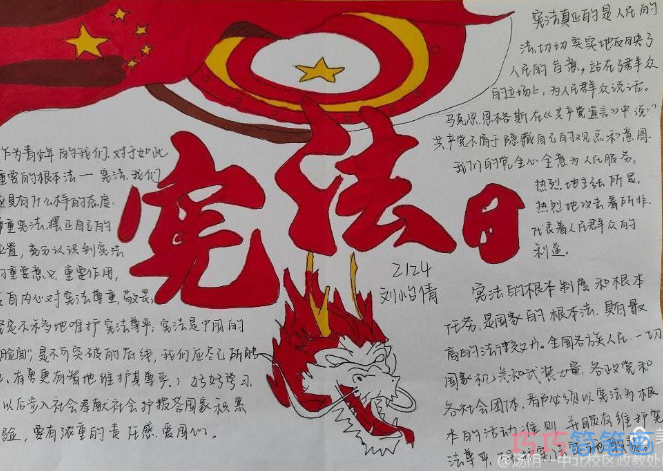 宪法日
2124
刘怡倩
作为青少年的我们,对于如此
重要的根本法——宪法,我们
应具有什么样的态度.
尊重宪法,摆正自己的
位置,高而认识到宪法
的重要意义,重要作用,
发自内心对宪法尊重,敬畏,
毫不 地维护宪法尊严,宪法是中国的
"脸面"是不可突破的底线,我们应尽己所能
有勇更有智地维护其尊严,好好学习
以后步入社会奉献社会 国家和
要有浓重的责任感,爱国心.
宪法真正的是人民的
法,切切实实地反映了
人民的自意,站在了群众
的立场上,为人民群众说话.
马克思,恩格斯在《共产党宣言》中说:"
共产党不屑于隐藏自己的观点和意图.
我们的党全心全意为人民服务,
热烈地主张所是,
热烈地攻击着所非.
代表着人民群众的
利益.
宪法的根本制度和根本
任务,是国家的根本法,具有最
高的法律效力.全国各族人民,一切
国家机关和武装力量,各政党和
各社会团体, 都必须以宪法为根
本的活动准则,并且负有维护宪
法尊严
巧巧简笔画
@汤阴一中北校区政教处